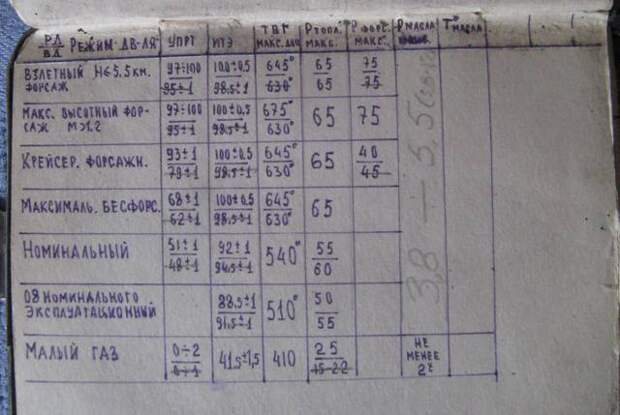 РД/ВД РЕЖИМ ДВ-ЛЯ УПРТ ИТЭ ТВГ МАКС. ДОП РТОПЛ. МАКС. Р ФОРС. МАКС. РМАСЛА Т° МАСЛА
ВЗЛЕТНЫЙ Н≤5.5 КМ. ФОРСАЖ 97÷100/95±1 100±0,5/98.5±1 645°/630° 65/65 75/75
МАКС. ВЫСОТНЫЙ ФОРСАЖ М>1.2 97÷100/95±1 100±0,5/98.5±1 675°/630° 65 75
КРЕЙСЕР. ФОРСАЖН. 93±1/79±1 100±0,5/98,5±1 645°/630° 65 40/45
МАКСИМАЛЬ. БЕСФОРС. 68±1/62±1 100±0,5/98.5±1 645°/630° 65
НОМИНАЛЬНЫЙ 51±1/48±1 92±1/94,5±1 540° 55/60
08 НОМИНАЛЬНОГО ЭКСПЛУАТАЦИОННЫЙ 88,5±1/91,5±1 510° 50/55
МАЛЫЙ ГАЗ 0÷2/0÷1 41,5±1,5 410 25/15-22 НЕ МЕНЕЕ 2х
3,8 — 5,5